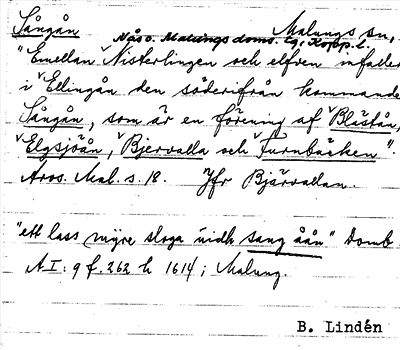 Sångån Malungs sn,
Nås o. Malungs doms. tg, Kopp. l.
"Emellan Niskerlingen och elfven infaller
i Ellingån den söderifrån kommande
Sångån, som är en förening af Blistån,
Elgsjöån, Bjervalla och Furnbäcken".
Aros. Mal. s. 18. Jfr Bjärvallan.
"ett lass myre sloga uidh sang åån" Domb.
AI: 9 f. 262 h 1614; Malung.
B. Lindén